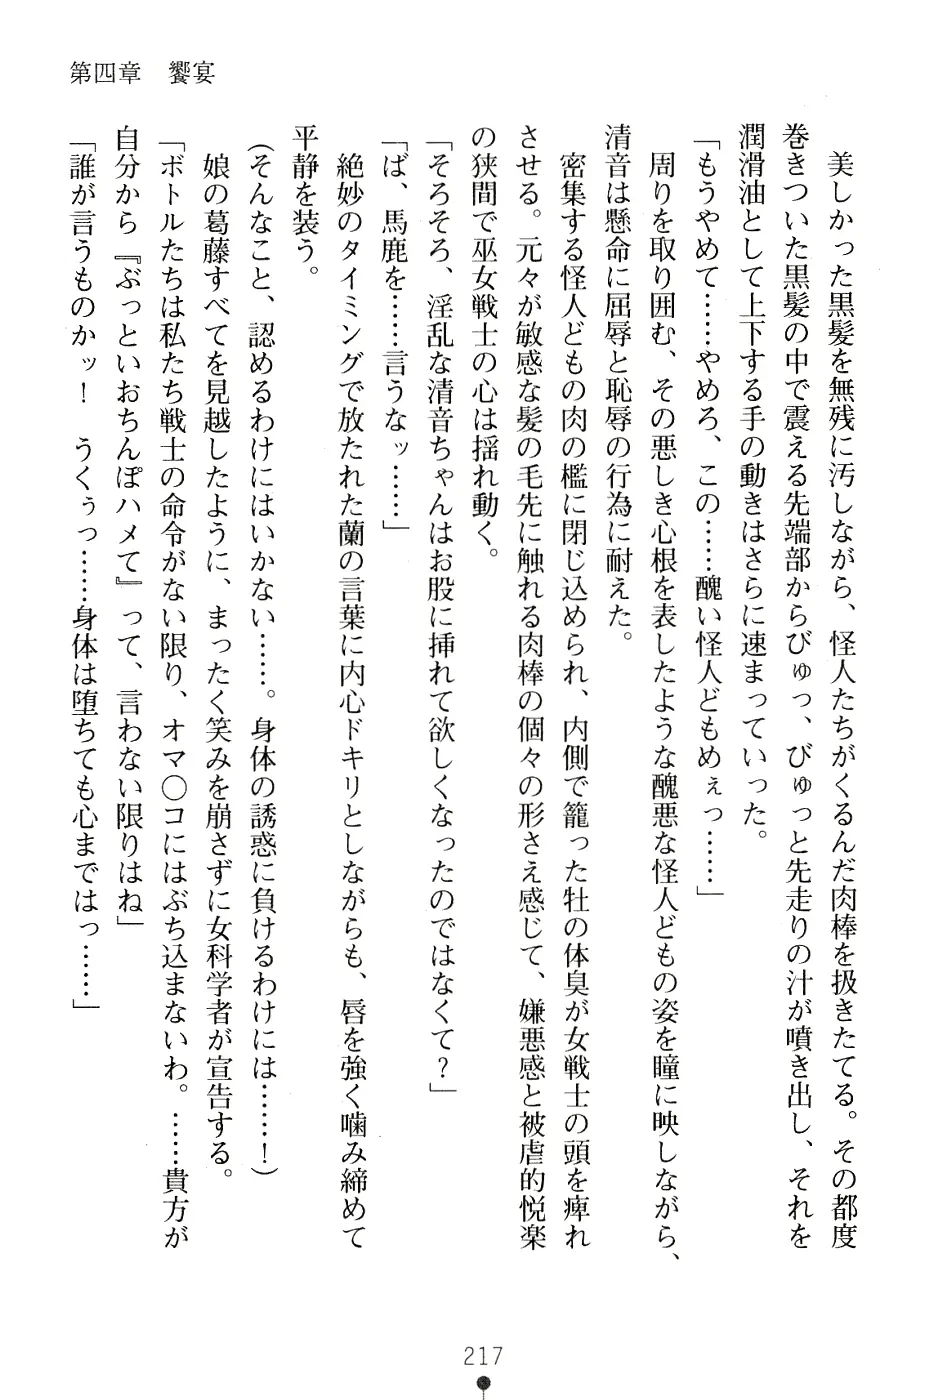 第四章　饗宴
美しかった黒髪を無残に汚しながら、怪人たちがくるんだ肉棒を扱きたてる。その都度
巻きついた黒髪の中で震える先端部からびゅっ、びゅっと先走りの汁が噴き出し、それを
潤滑油として上下する手の動きはさらに速まっていった。
「もうやめて……やめろ、この……醜い怪人どもめぇっ……」
周りを取り囲む、その悪しき心根を表したような醜悪な怪人どもの姿を瞳に映しながら、
清音は懸命に屈辱と恥辱の行為に耐えた。
密集する怪人どもの肉の檻に閉じ込められ、内側で籠った牡の体臭が女戦士の頭を痺れ
させる。元々が敏感な髪の毛先に触れる肉棒の個々の形さえ感じて、嫌悪感と被虐的悦楽
の狭間で巫女戦士の心は揺れ動く。
「そろそろ、淫乱な清音ちゃんはお股に挿れて欲しくなったのではなくて？」
「ば、馬鹿を……言うなッ……」
絶妙のタイミングで放たれた蘭の言葉に内心ドキリとしながらも、唇を強く噛み締めて
平静を装う。
(そんなこと、認めるわけにはいかない……。身体の誘惑に負けるわけには……！)
娘の葛藤すべてを見越したように、まったく笑みを崩さずに女科学者が宣告する。
「ボトルたちは私たち戦士の命令がない限り、オマ〇コにはぶち込まないわ。……貴方が
自分から『ぶっといおちんぽハメて』って、言わない限りはね」
「誰が言うものかッ！　うくぅっ……身体は堕ちても心まではっ……」
217